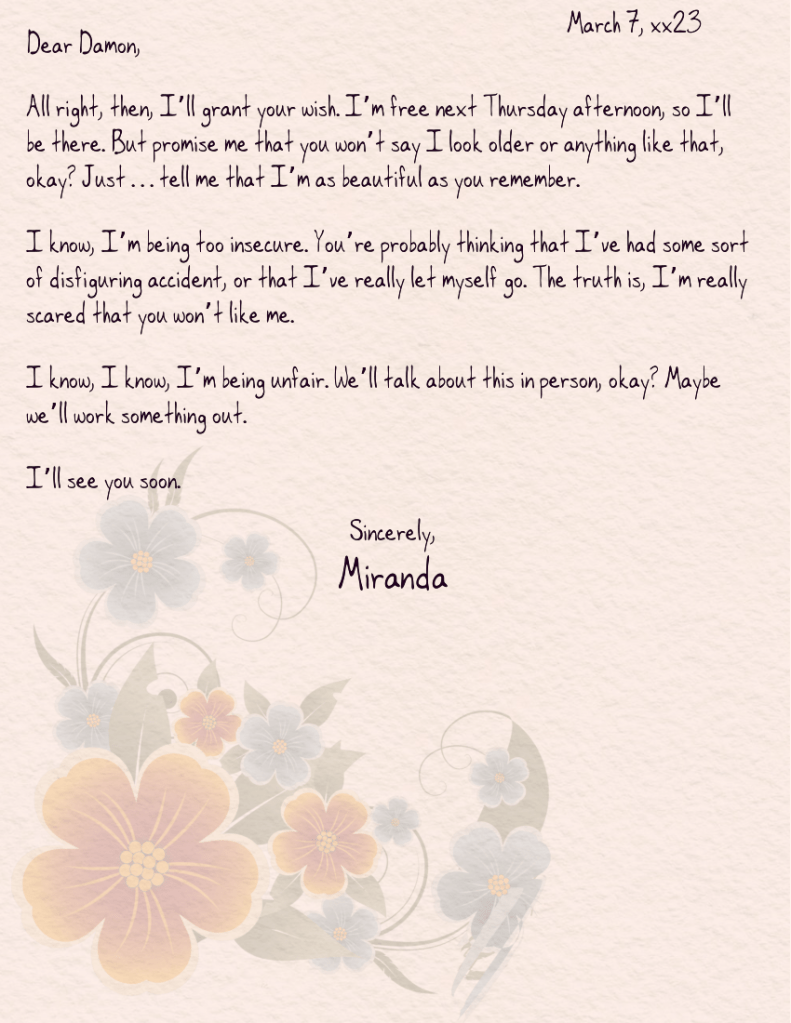 March 7, xx23
Dear Damon,
All right, then, I'll grant your wish. I'm free next Thursday afternoon, so I'll
be there. But promise me that you won't say I look older or anything like that,
okay? Just ... tell me that I'm as beautiful as you remember.
I know, I'm being too insecure. You're probably thinking that I've had some sort
of disfiguring accident, or that I've really let myself go. The truth is, I'm really
scared that you won't like me.
I know, I know, I'm being unfair. We'll talk about this in person, okay? Maybe
we'll work something out.
I'll see you soon.
Sincerely,
Miranda